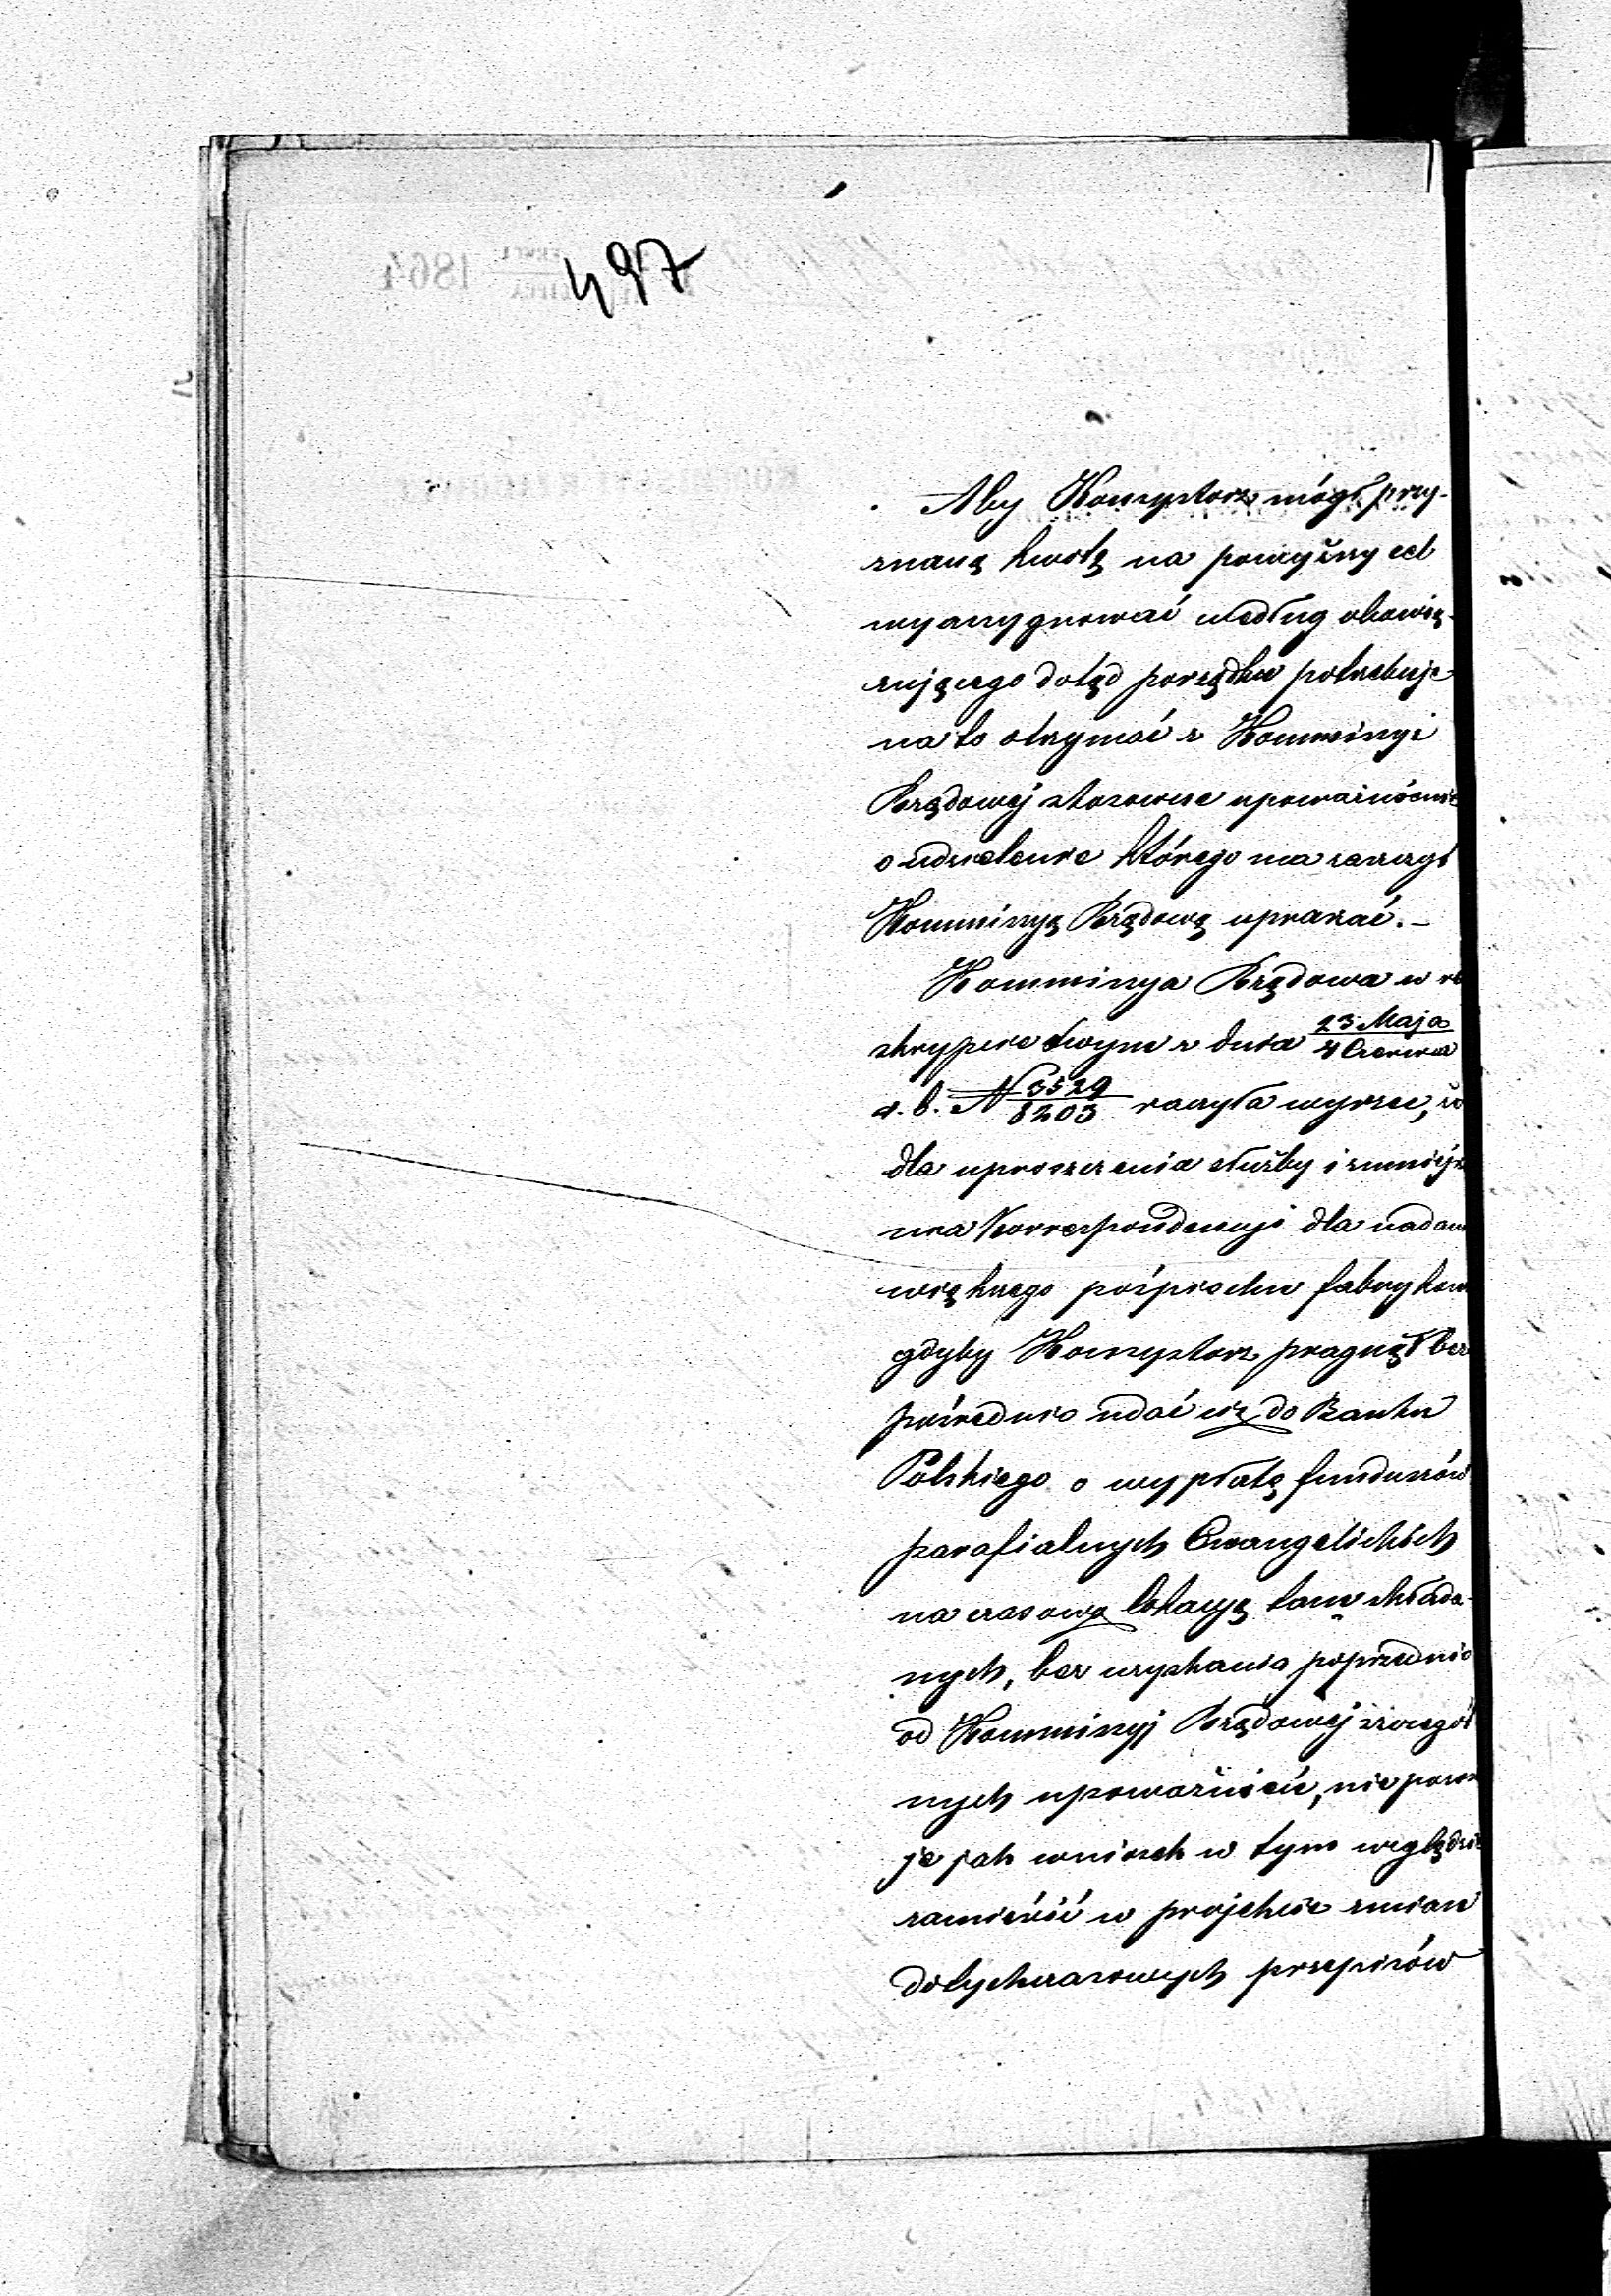 497
Aby Konsystorz mógł przy-
znaną kwotę na powyższy cel
wyassygnować według obowią-
zującego dotąd porządku potrzebuje
na to otrzymać z Kommissyi
Rządowéj stosowne upoważnienie
o udzielenie którego ma zaszczyt
Kommissyą Rządową upraszać. -
Kommissya Rządowa w re
skrypcie swym z dnia 23 Maja / 4 Czerwca
r. b. N 3529/8203 raczyła wyrzec, że
dla uproszczenia służby i zmniejsz
nia Korrespondencyi dla nadan
większego pośpiechu fabrykom
gdyby Konsystorz pragnął bez
pośrednio udać się do Banku
Polskiego o wypłatę funduszów
parafialnych Ewangelickich
na czasową lokacyę tam składa-
nych, bez uzyskania poprzednio
od Kommissyj Rządowéj szczegól
nych upoważnień, nie pozos
je jak wniosek w tym względzie
zamieścić w projekcie zmian
dotychczasowych przepisów